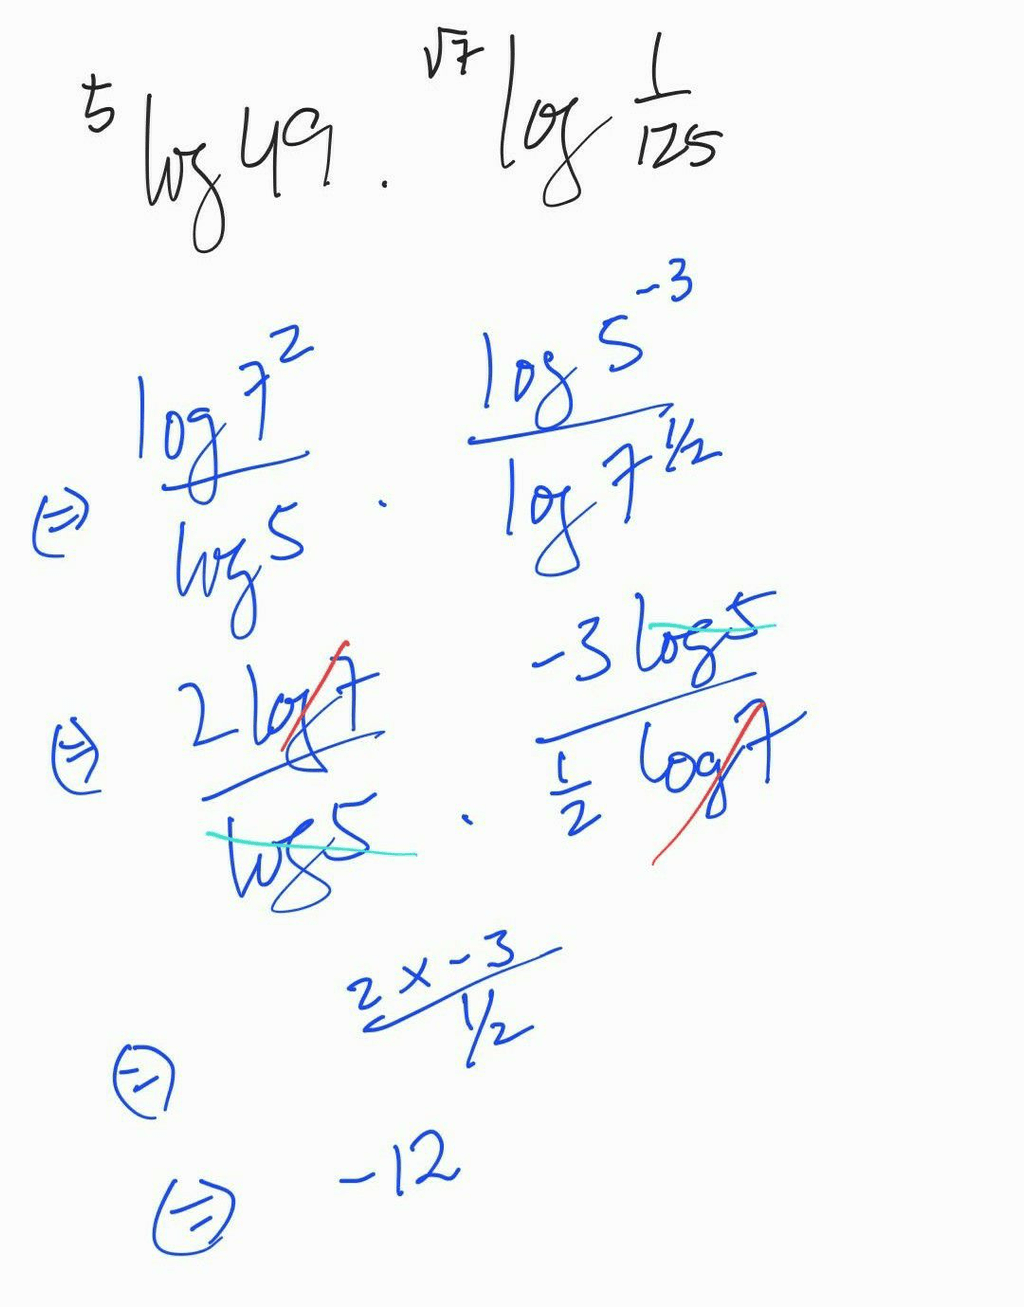 ⁵log 49 . √7 log 1/125
⇔ log 7² / log 5 . log 5⁻³ / log 7^1/2
⇔ 2 log 7 / log 5 . -3 log 5 / 1/2 log 7
⇔ 2 x -3 / 1/2
⇔ -12